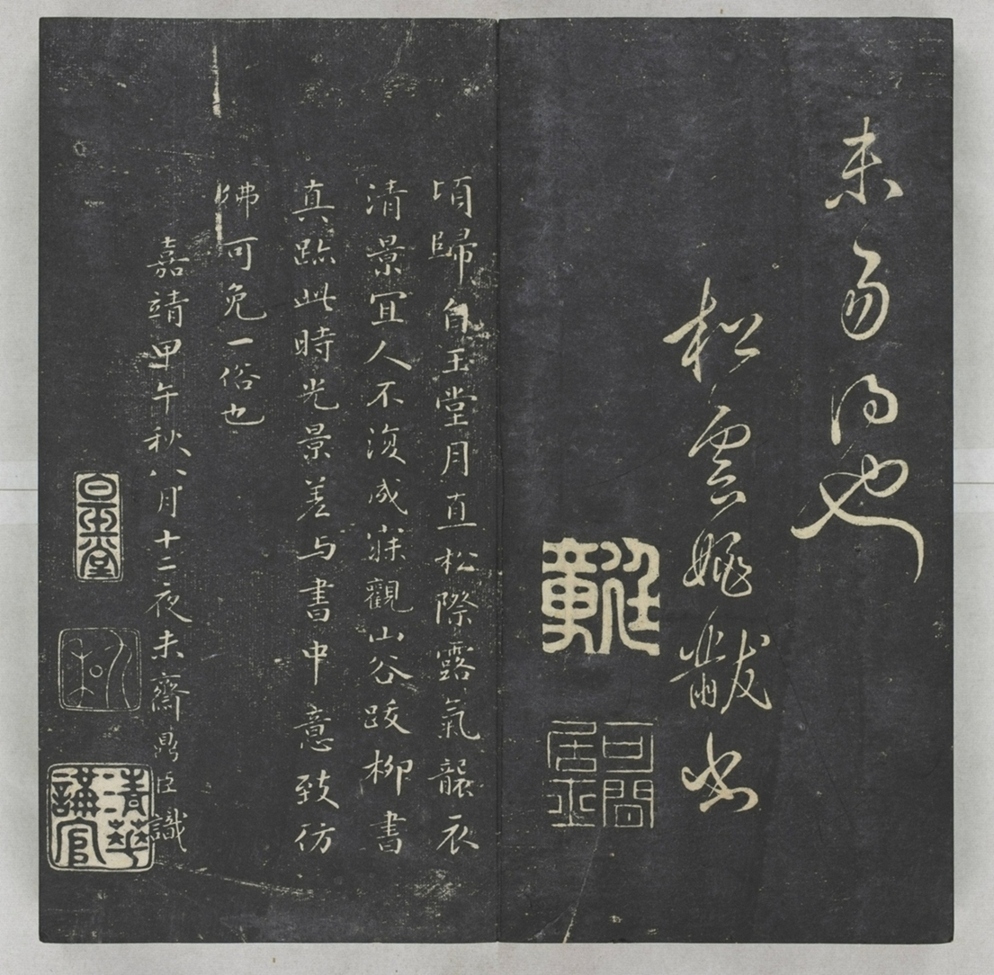 未易得也
松雲姚黻書
頃歸自玉堂月直松際露氣襲衣
清景宜人不復成寐觀山谷跋柳書
真跡此時光景差与書中意致彷
彿可免一俗也
嘉靖甲午秋八月十二夜未齋鼎臣識
清華講官